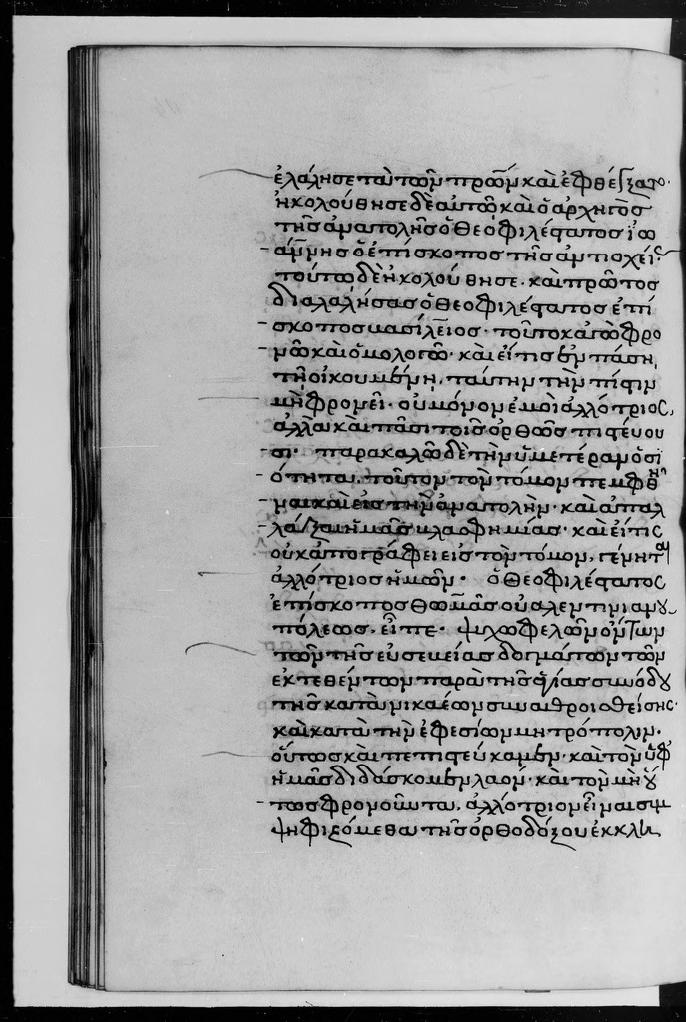 ἐλάλησε τὰ τῶν πρ̅ων καὶ ἐφθέγξατο·
ἠκολούθησε δὲ αὐτῷ καὶ ὁ ἀρχηγὸς
τῆς ἀνατολῆς ὁ θεοφιλέστατος ἰω
άννης ὁ ἐπίσκοπος τῆς ἀντιοχείας·
τούτω δὲ ἠκολούθησε· καὶ πρῶτος
διαλαλήσας ὁ θεοφιλέστατος ἐπί
σκοπος βασίλειος· τοῦτο κἀγὼ φρο
νῶ καὶ ὁμολογῶ· καὶ εἴ τις ἐν πάση
τῆ οἰκουμένη, ταύτην τὴν πίστιν
μὴ φρονεῖ· οὐ μόνον ἐμοὶ ἀλλότριος,
ἀλλὰ καὶ πᾶσι τοῖς ὀρθῶς πιστεύου
σι· παρακαλῶ δὲ τὴν ὑμετέραν ὁσι
ότητα, τοῦτον τὸν τόμον πεμφθῆ
ναι καὶ εἰς τὴν ἀνατολὴν· καὶ ἀπαλ
λάξαι ἡμᾶς βλασφημίας· καὶ εἴ τις
οὐκ ἀπογράφει εἰς τὸν τόμον, γένηται
ἀλλότριος ἡμῶν· ὁ θεοφιλέστατος
ἐπίσκοπος θωμᾶς οὐαλεντινιανου
πόλεως, εἶπε· ψυχωφελῶν ὄντων
τῶν τῆς εὐσεβείας δογμάτων τῶν
ἐκτεθέντων παρὰ τῆς ἁγίας συνόδου
τῆς κατὰ νικαέων συναθροισθείσης·
καὶ κατὰ τὴν ἐφεσίων μητρόπολιν·
οὕτως καὶ πεπιστεύκαμεν· καὶ τὸν ὑφ
ἡμᾶς διδάσκομεν λαόν· καὶ τὸν μὴ οὕ
τως φρονοῦντα, ἀλλότριον εἶναι συμ
ψηφιζόμεθα τῆς ὀρθοδόξου ἐκκλη